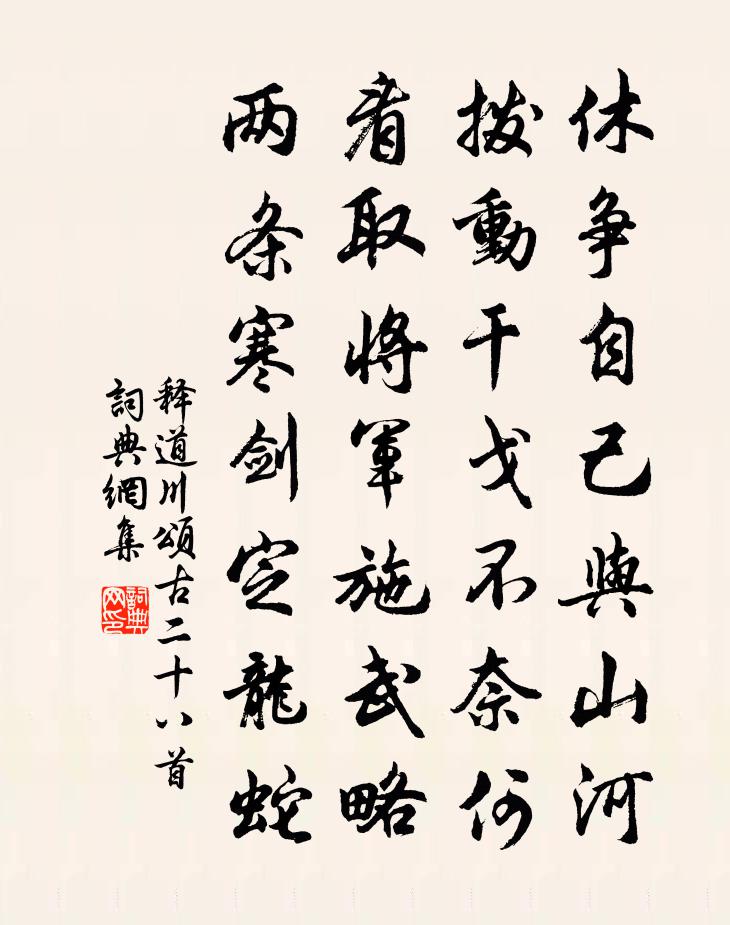 休争自己與山河
拨動干戈不奈何
看取將軍施武略
两条寒剑定龍蛇
释道川頌古二十八首
詞典網集
詞典网印